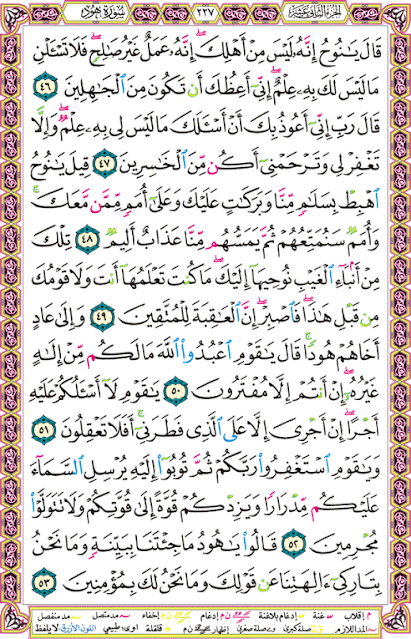 الجزء الثاني عشر ٢٢٧ سورة هود
قَالَ يَٰنُوحُ إِنَّهُۥ لَيْسَ مِنْ أَهْلِكَ ۖ إِنَّهُۥ عَمَلٌ غَيْرُ صَٰلِحٍ ۖ فَلَا تَسْـَٔلْنِ
مَا لَيْسَ لَكَ بِهِۦ عِلْمٌ ۖ إِنِّىٓ أَعِظُكَ أَن تَكُونَ مِنَ ٱلْجَٰهِلِينَ ٤٦
قَالَ رَبِّ إِنِّىٓ أَعُوذُ بِكَ أَنْ أَسْـَٔلَكَ مَا لَيْسَ لِى بِهِۦ عِلْمٌ ۖ وَإِلَّا
تَغْفِرْ لِى وَتَرْحَمْنِىٓ أَكُن مِّنَ ٱلْخَٰسِرِينَ ٤٧ قِيلَ يَٰنُوحُ
ٱهْبِطْ بِسَلَٰمٍ مِّنَّا وَبَرَكَٰتٍ عَلَيْكَ وَعَلَىٰٓ أُمَمٍ مِّمَّن مَّعَكَ ۚ
وَأُمَمٌ سَنُمَتِّعُهُمْ ثُمَّ يَمَسُّهُم مِّنَّا عَذَابٌ أَلِيمٌ ٤٨ تِلْكَ
مِنْ أَنۢبَآءِ ٱلْغَيْبِ نُوحِيهَآ إِلَيْكَ ۖ مَا كُنتَ تَعْلَمُهَآ أَنتَ وَلَا قَوْمُكَ
مِن قَبْلِ هَٰذَا ۖ فَٱصْبِرْ ۖ إِنَّ ٱلْعَٰقِبَةَ لِلْمُتَّقِينَ ٤٩ وَإِلَىٰ عَادٍ
أَخَاهُمْ هُودًا ۚ قَالَ يَٰقَوْمِ ٱعْبُدُوا۟ ٱللَّهَ مَا لَكُم مِّنْ إِلَٰهٍ
غَيْرُهُۥٓ ۖ إِنْ أَنتُمْ إِلَّا مُفْتَرُونَ ٥٠ يَٰقَوْمِ لَآ أَسْـَٔلُكُمْ عَلَيْهِ
أَجْرًا ۖ إِنْ أَجْرِىَ إِلَّا عَلَى ٱلَّذِى فَطَرَنِىٓ ۚ أَفَلَا تَعْقِلُونَ ٥١
وَيَٰقَوْمِ ٱسْتَغْفِرُوا۟ رَبَّكُمْ ثُمَّ تُوبُوٓا۟ إِلَيْهِ يُرْسِلِ ٱلسَّمَآءَ
عَلَيْكُم مِّدْرَارًا وَيَزِدْكُمْ قُوَّةً إِلَىٰ قُوَّتِكُمْ وَلَا تَتَوَلَّوْا۟
مُجْرِمِينَ ٥٢ قَالُوا۟ يَٰهُودُ مَا جِئْتَنَا بِبَيِّنَةٍ وَمَا نَحْنُ
بِتَارِكِىٓ ءَالِهَتِنَا عَن قَوْلِكَ وَمَا نَحْنُ لَكَ بِمُؤْمِنِينَ ٥٣